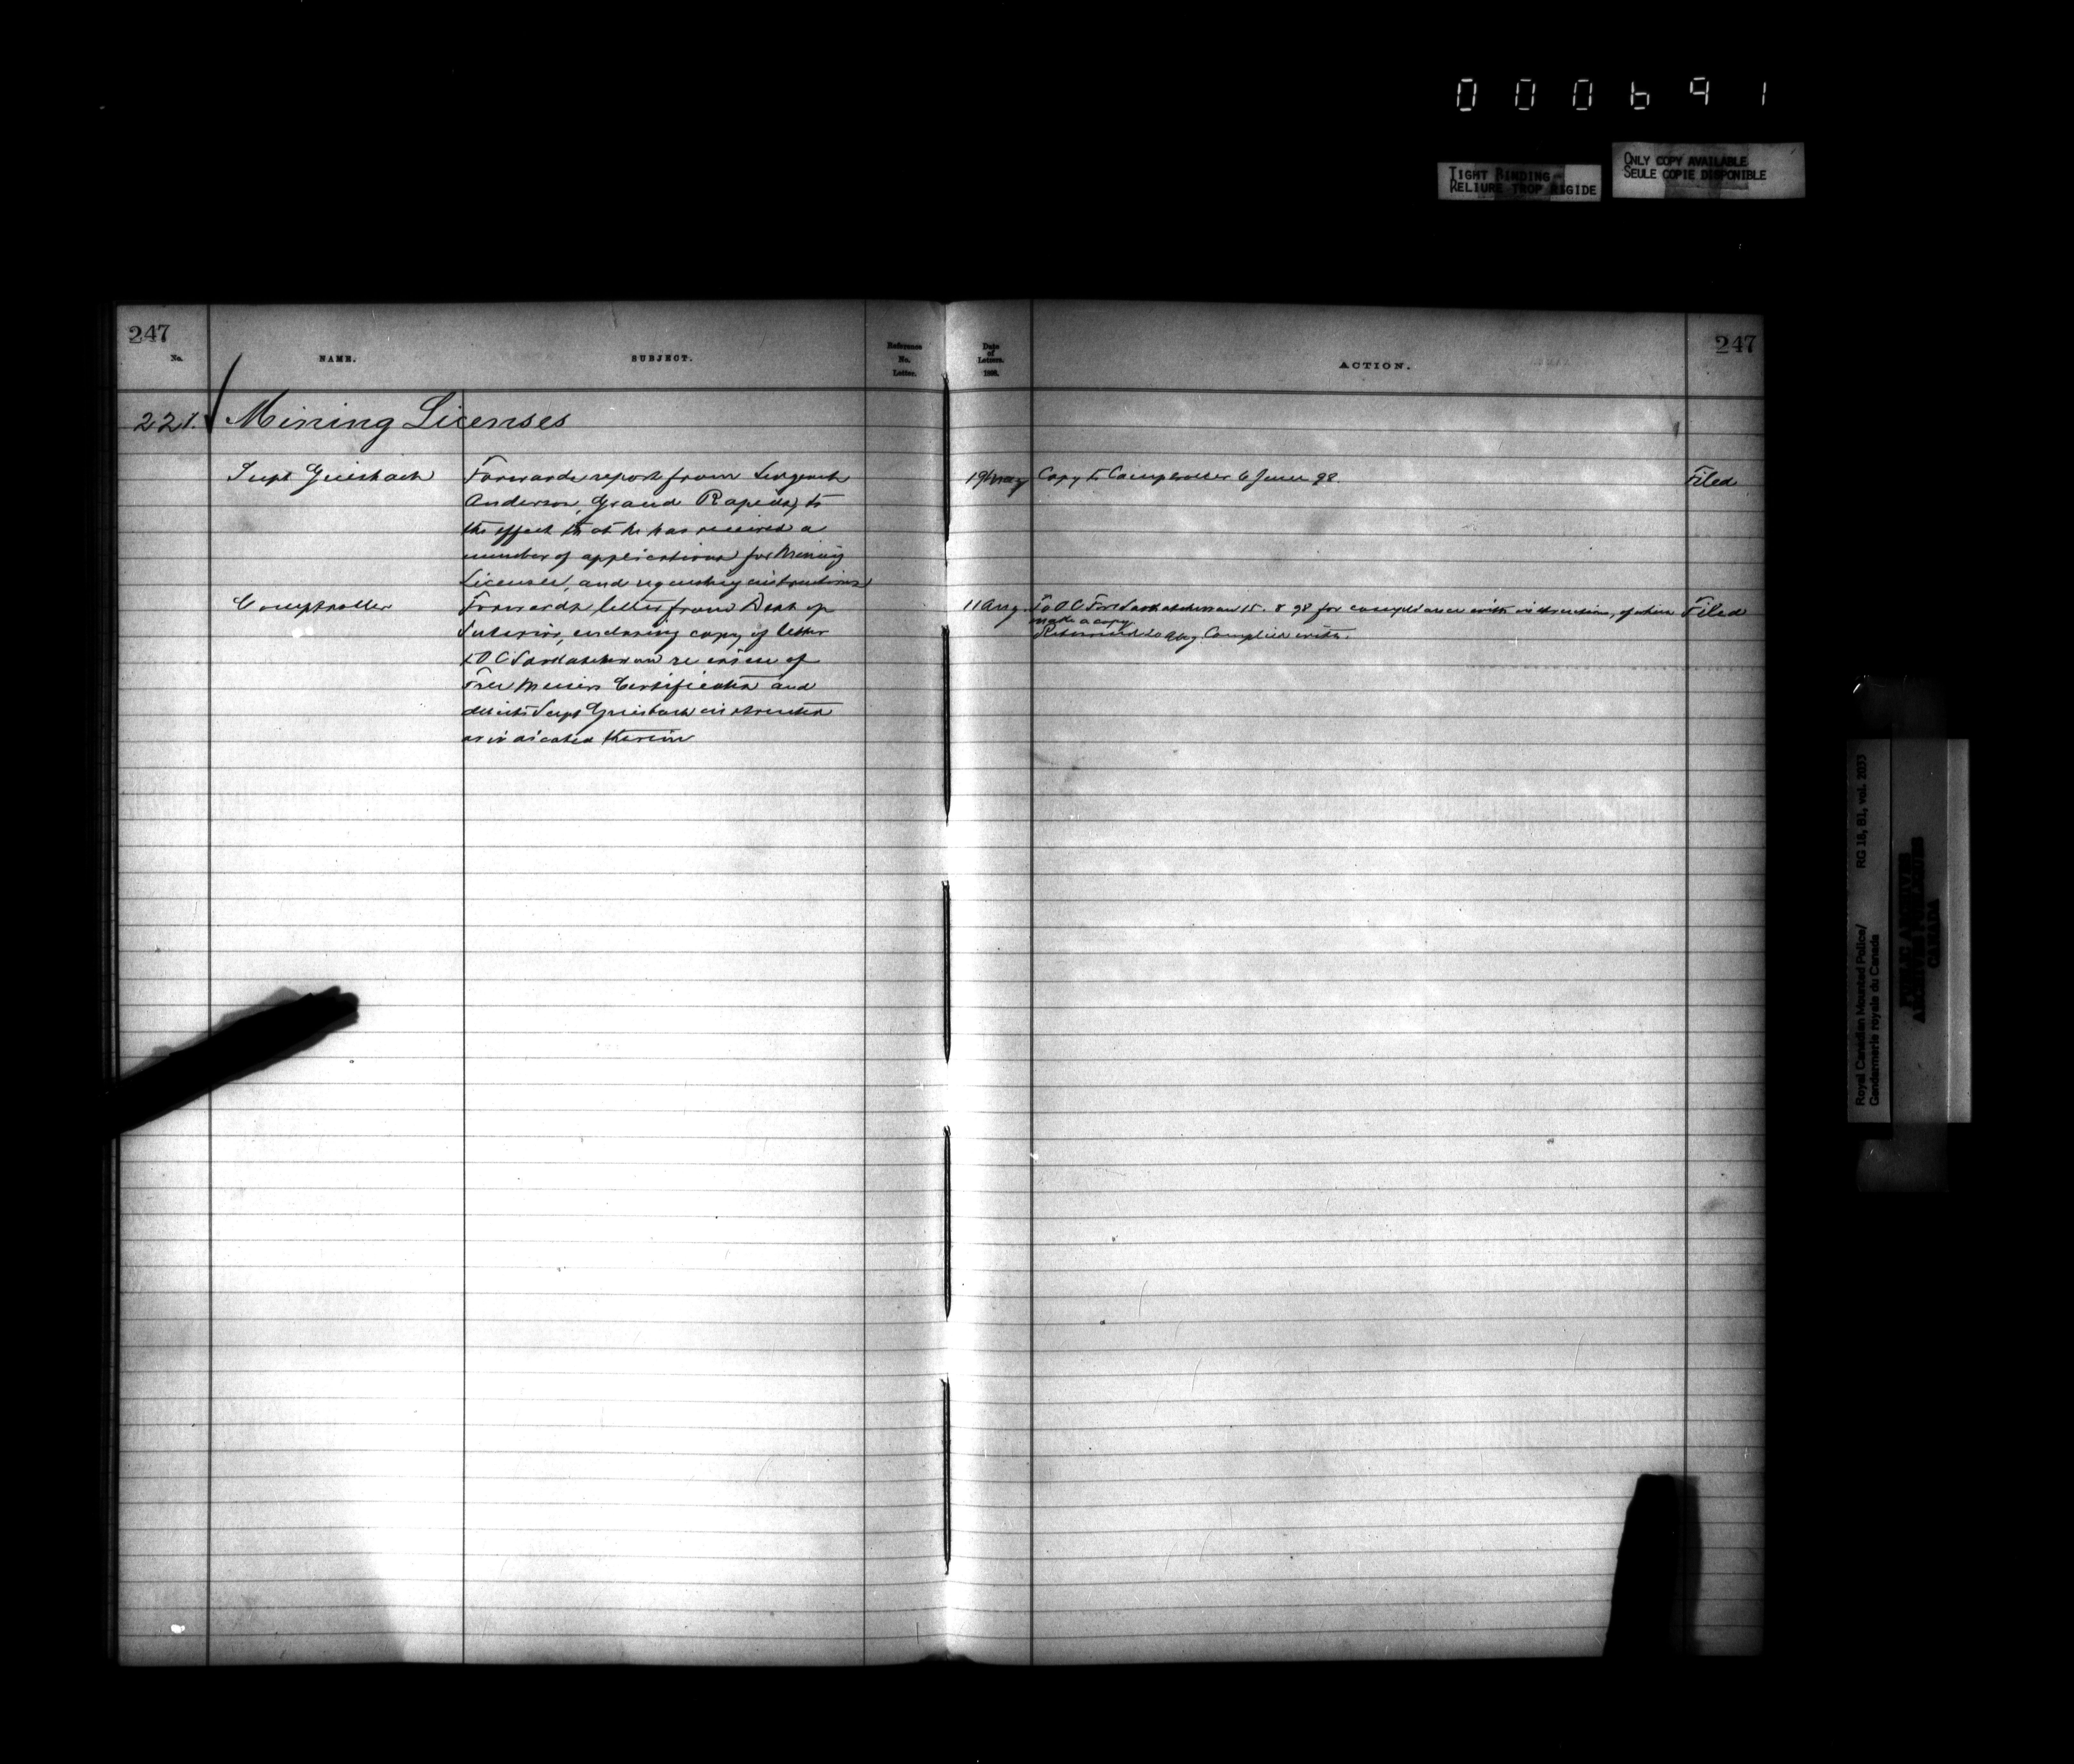 000691
TIGHT BINDING
RELIURE TROP RIGIDE
ONLY COPY AVAILABLE
SEULE COPIE DISPONIBLE
247
No.
NAME.
SUBJECT.
Reference
No.
Letter.
Date
of
Letters.
189
ACTION.
247
221. Mining Licenses
Supt Griesbach
Forwards report from Sergeant
Anderson, Grand Rapids, to
the effect that he has received a
number of applications for Mining
Licenses, and requesting instructions
19 May
Copy to Comptroller 6 June 98
Filed
Comptroller
Forwards letter from Dept of
Interior, enclosing copy of letter
to O C Saskatchewan re issue of
Free Miners Certificates and
directs Supt Griesbach instructed
as indicated therein
11 Aug
To O C Fort Saskatchewan 15. 8 98 for compliance with instructions, of which
make a copy
Returned 20 Aug. Complied with.
Filed
Royal Canadian Mounted Police/
Gendarmerie royale du Canada
RG 18, B1, vol. 2033
PUBLIC ARCHIVES
ARCHIVES PUBLIQUES
CANADA